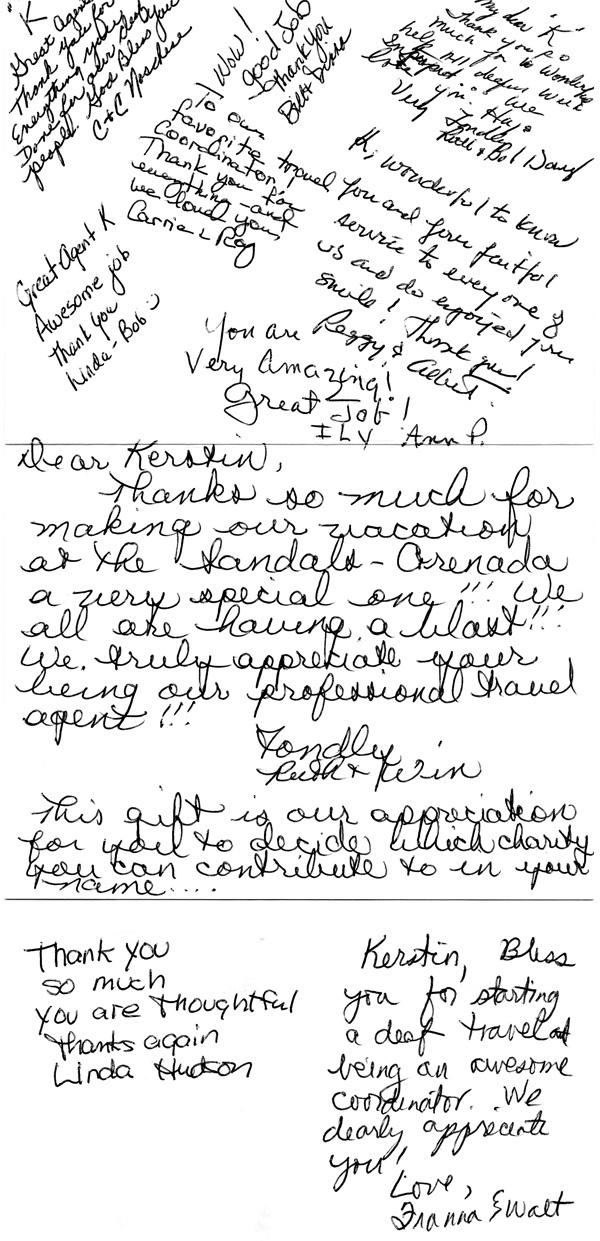 K
Great Agent
Thank you for
Everything you
Done for our deaf
people. God Bless you
C & C Noschese
Wow!
good Job
Thank you
Bill & Diana
My dear "K"
Thank you so
much for a wonderful
help
We
love you.
Very
Fondly
Ruth & Bob Dauf
To our
favorite travel
Coordinator,
Thank you for
everything and
we cloud yours
Carrie & Ray
Hi, wonderful to know
you and your faithful
service to everyone of
us and do enjoyed your
smile! Thank you!
Peggy & Albert
Great Agent K
Awesome job
Thank you
Linda - Bob
You are
Very Amazing!
Great Job!
ILY Ann P.
Dear Kerstin,
Thanks so much for
making our vacation
at the Sandals - Grenada
a very special one!!! We
all are having a blast!!!
We truly appreciate your
being our professional travel
agent!!!
Fondly
Ruth & Kevin
This gift is our appreciation
for you to decide which charity
you can contribute to in your
name....
Thank you
so much
you are thoughtful
thanks again
Linda Hudson
Kerstin, Bless
you for starting
a deaf travel and
being an awesome
coordinator. We
dearly appreciate
you!
Love,
Franna & Walt